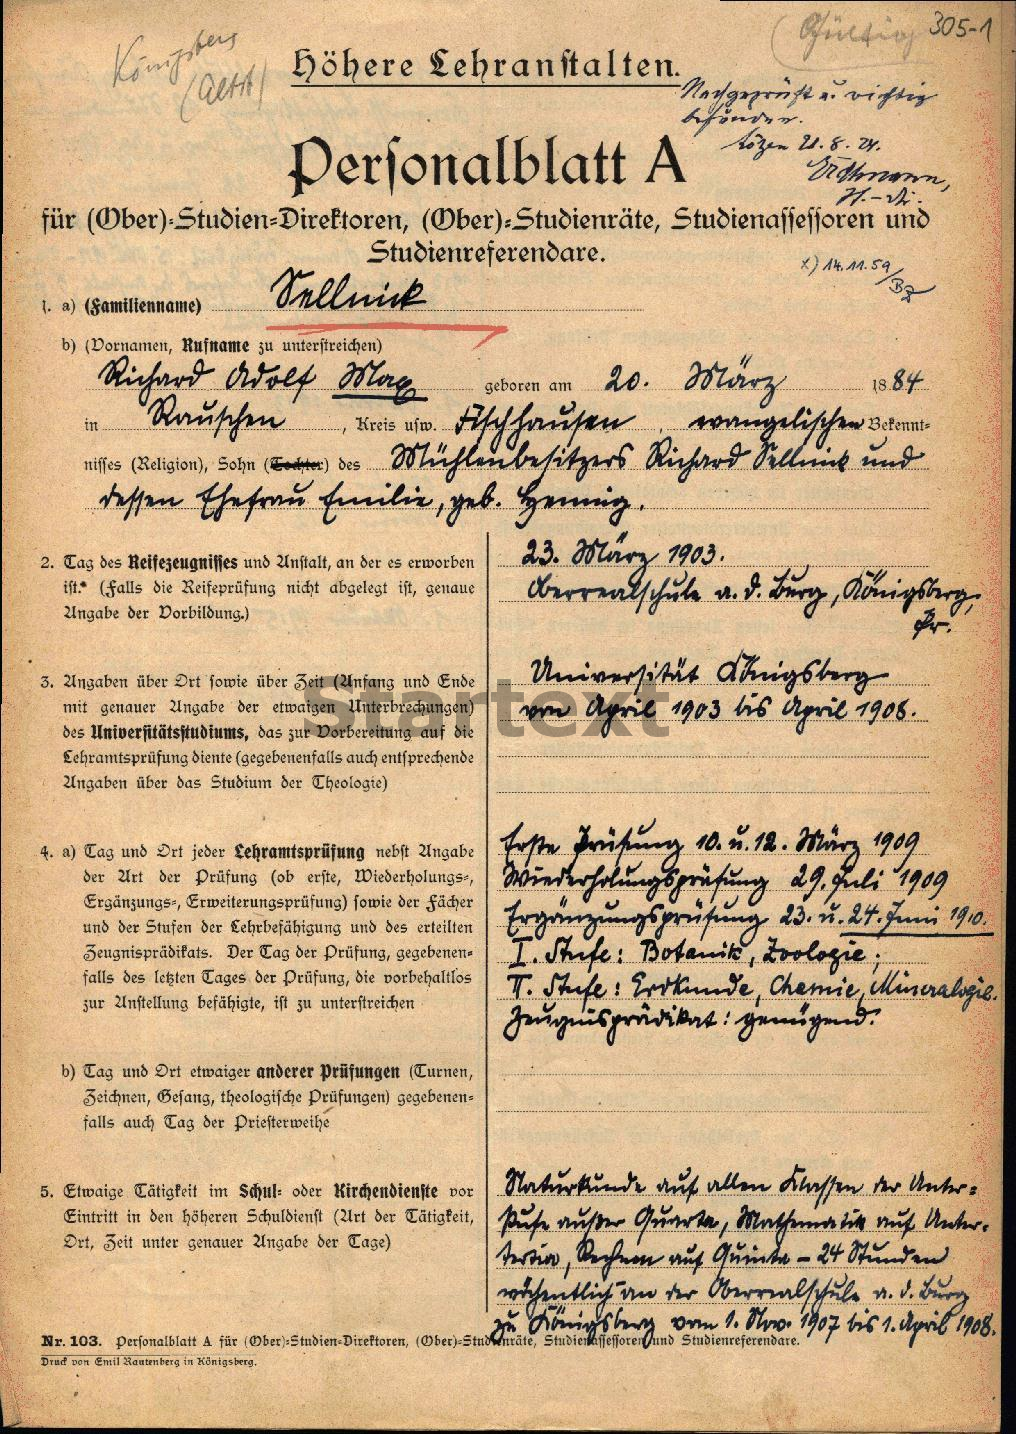 305-1
(Gültig)
Königsberg
(Altst)
Höhere Lehranstalten.
Nachgeprüft u. richtig
befunden.
Lötzen 21.8.24.
Erdtmann,
Personalblatt A
für (Ober)-Studien-Direktoren, (Ober)-Studienräte, Studienassessoren und
Studienreferendare.
x) 14.11.59
1. a) (Familienname) Sellnick
b) (Vornamen, Rufname zu unterstreichen)
Richard Adolf Max geboren am 20. März 1884
in Rauschen, Kreis usw. Fischhausen, evangelischen Bekennt-
nisses (Religion), Sohn (Tochter) des Mühlenbesitzers Richard Sellnick und
dessen Ehefrau Emilie, geb. Hennig.
2. Tag des Reifezeugnisses und Anstalt, an der es erworben
ist.* (Falls die Reifeprüfung nicht abgelegt ist, genaue
Angabe der Vorbildung.)
23. März 1903.
Oberrealschule a. d. Burg, Königsberg,
Pr.
3. Angaben über Ort sowie über Zeit (Anfang und Ende
mit genauer Angabe der etwaigen Unterbrechungen)
des Universitätsstudiums, das zur Vorbereitung auf die
Lehramtsprüfung diente (gegebenenfalls auch entsprechende
Angaben über das Studium der Theologie)
Universität Königsberg
von April 1903 bis April 1908.
Startext
4. a) Tag und Ort jeder Lehramtsprüfung nebst Angabe
der Art der Prüfung (ob erste, Wiederholungs-,
Ergänzungs-, Erweiterungsprüfung) sowie der Fächer
und der Stufen der Lehrbefähigung und des erteilten
Zeugnisprädikats. Der Tag der Prüfung, gegebenen-
falls des letzten Tages der Prüfung, die vorbehaltlos
zur Anstellung befähigte, ist zu unterstreichen
Erste Prüfung 10. u. 12. März 1909
Wiederholungsprüfung 29. Juli 1909
Ergänzungsprüfung 23. u. 24. Juni 1910.
I. Stufe: Botanik, Zoologie;
II. Stufe: Erdkunde, Chemie, Mineralogie.
Zeugnisprädikat: genügend.
b) Tag und Ort etwaiger anderer Prüfungen (Turnen,
Zeichnen, Gesang, theologische Prüfungen) gegebenen-
falls auch Tag der Priesterweihe
5. Etwaige Tätigkeit im Schul- oder Kirchendienste vor
Eintritt in den höheren Schuldienst (Art der Tätigkeit,
Ort, Zeit unter genauer Angabe der Tage)
Naturkunde auf allen Klassen der Unter-
stufe außer Quarta, Mathematik auf Unter-
tertia, Rechnen auf Quinta – 24 Stunden
wöchentlich an der Oberrealschule a. d. Burg
zu Königsberg vom 1. Nov. 1907 bis 1. April 1908.
Nr. 103. Personalblatt A für (Ober)-Studien-Direktoren, (Ober)-Studienräte, Studienassessoren und Studienreferendare.
Druck von Emil Rautenberg in Königsberg.